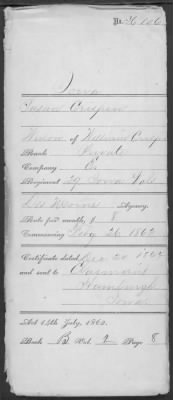 No. 36106
Iowa
Susan Crispin
Widow of William Crispin
Rank Private
Company E
Regiment 29 Iowa Vols
Des Moines Agency.
Rate per month, $ 8
Commencing Aug 26 1862
Certificate dated 20
and sent to
Hamburgh
Iowa
Act 14th July, 1862.
Book B Vol. 2 Page 8